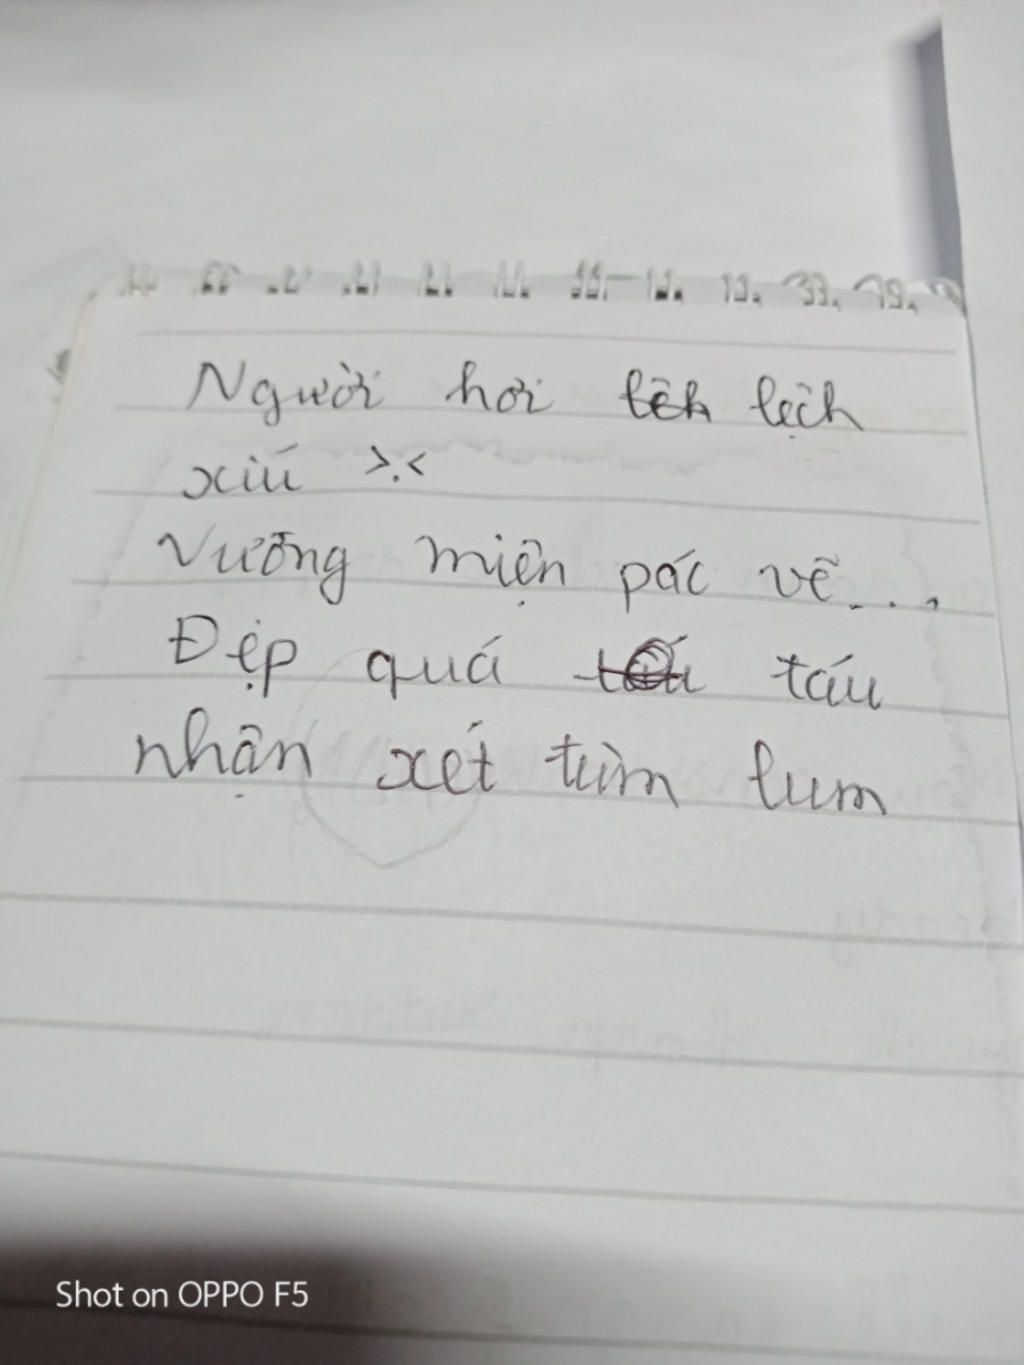 Người hơi lệch
xíu >.<
Vương miện pác vẽ...
Đẹp quá táu
nhận xét tùm lum
Shot on OPPO F5